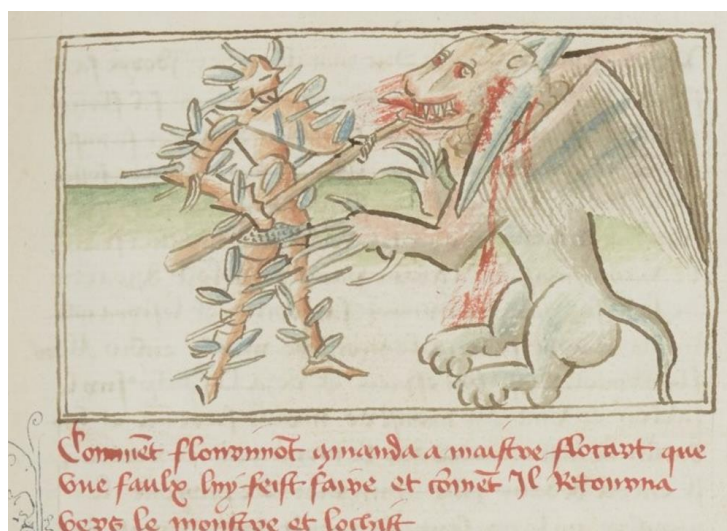 Comment flouremõt cõmanda a maistre flocart que
vne faulx luy feist faire et cõmẽt Il Retourna
vers le monstre et lochist